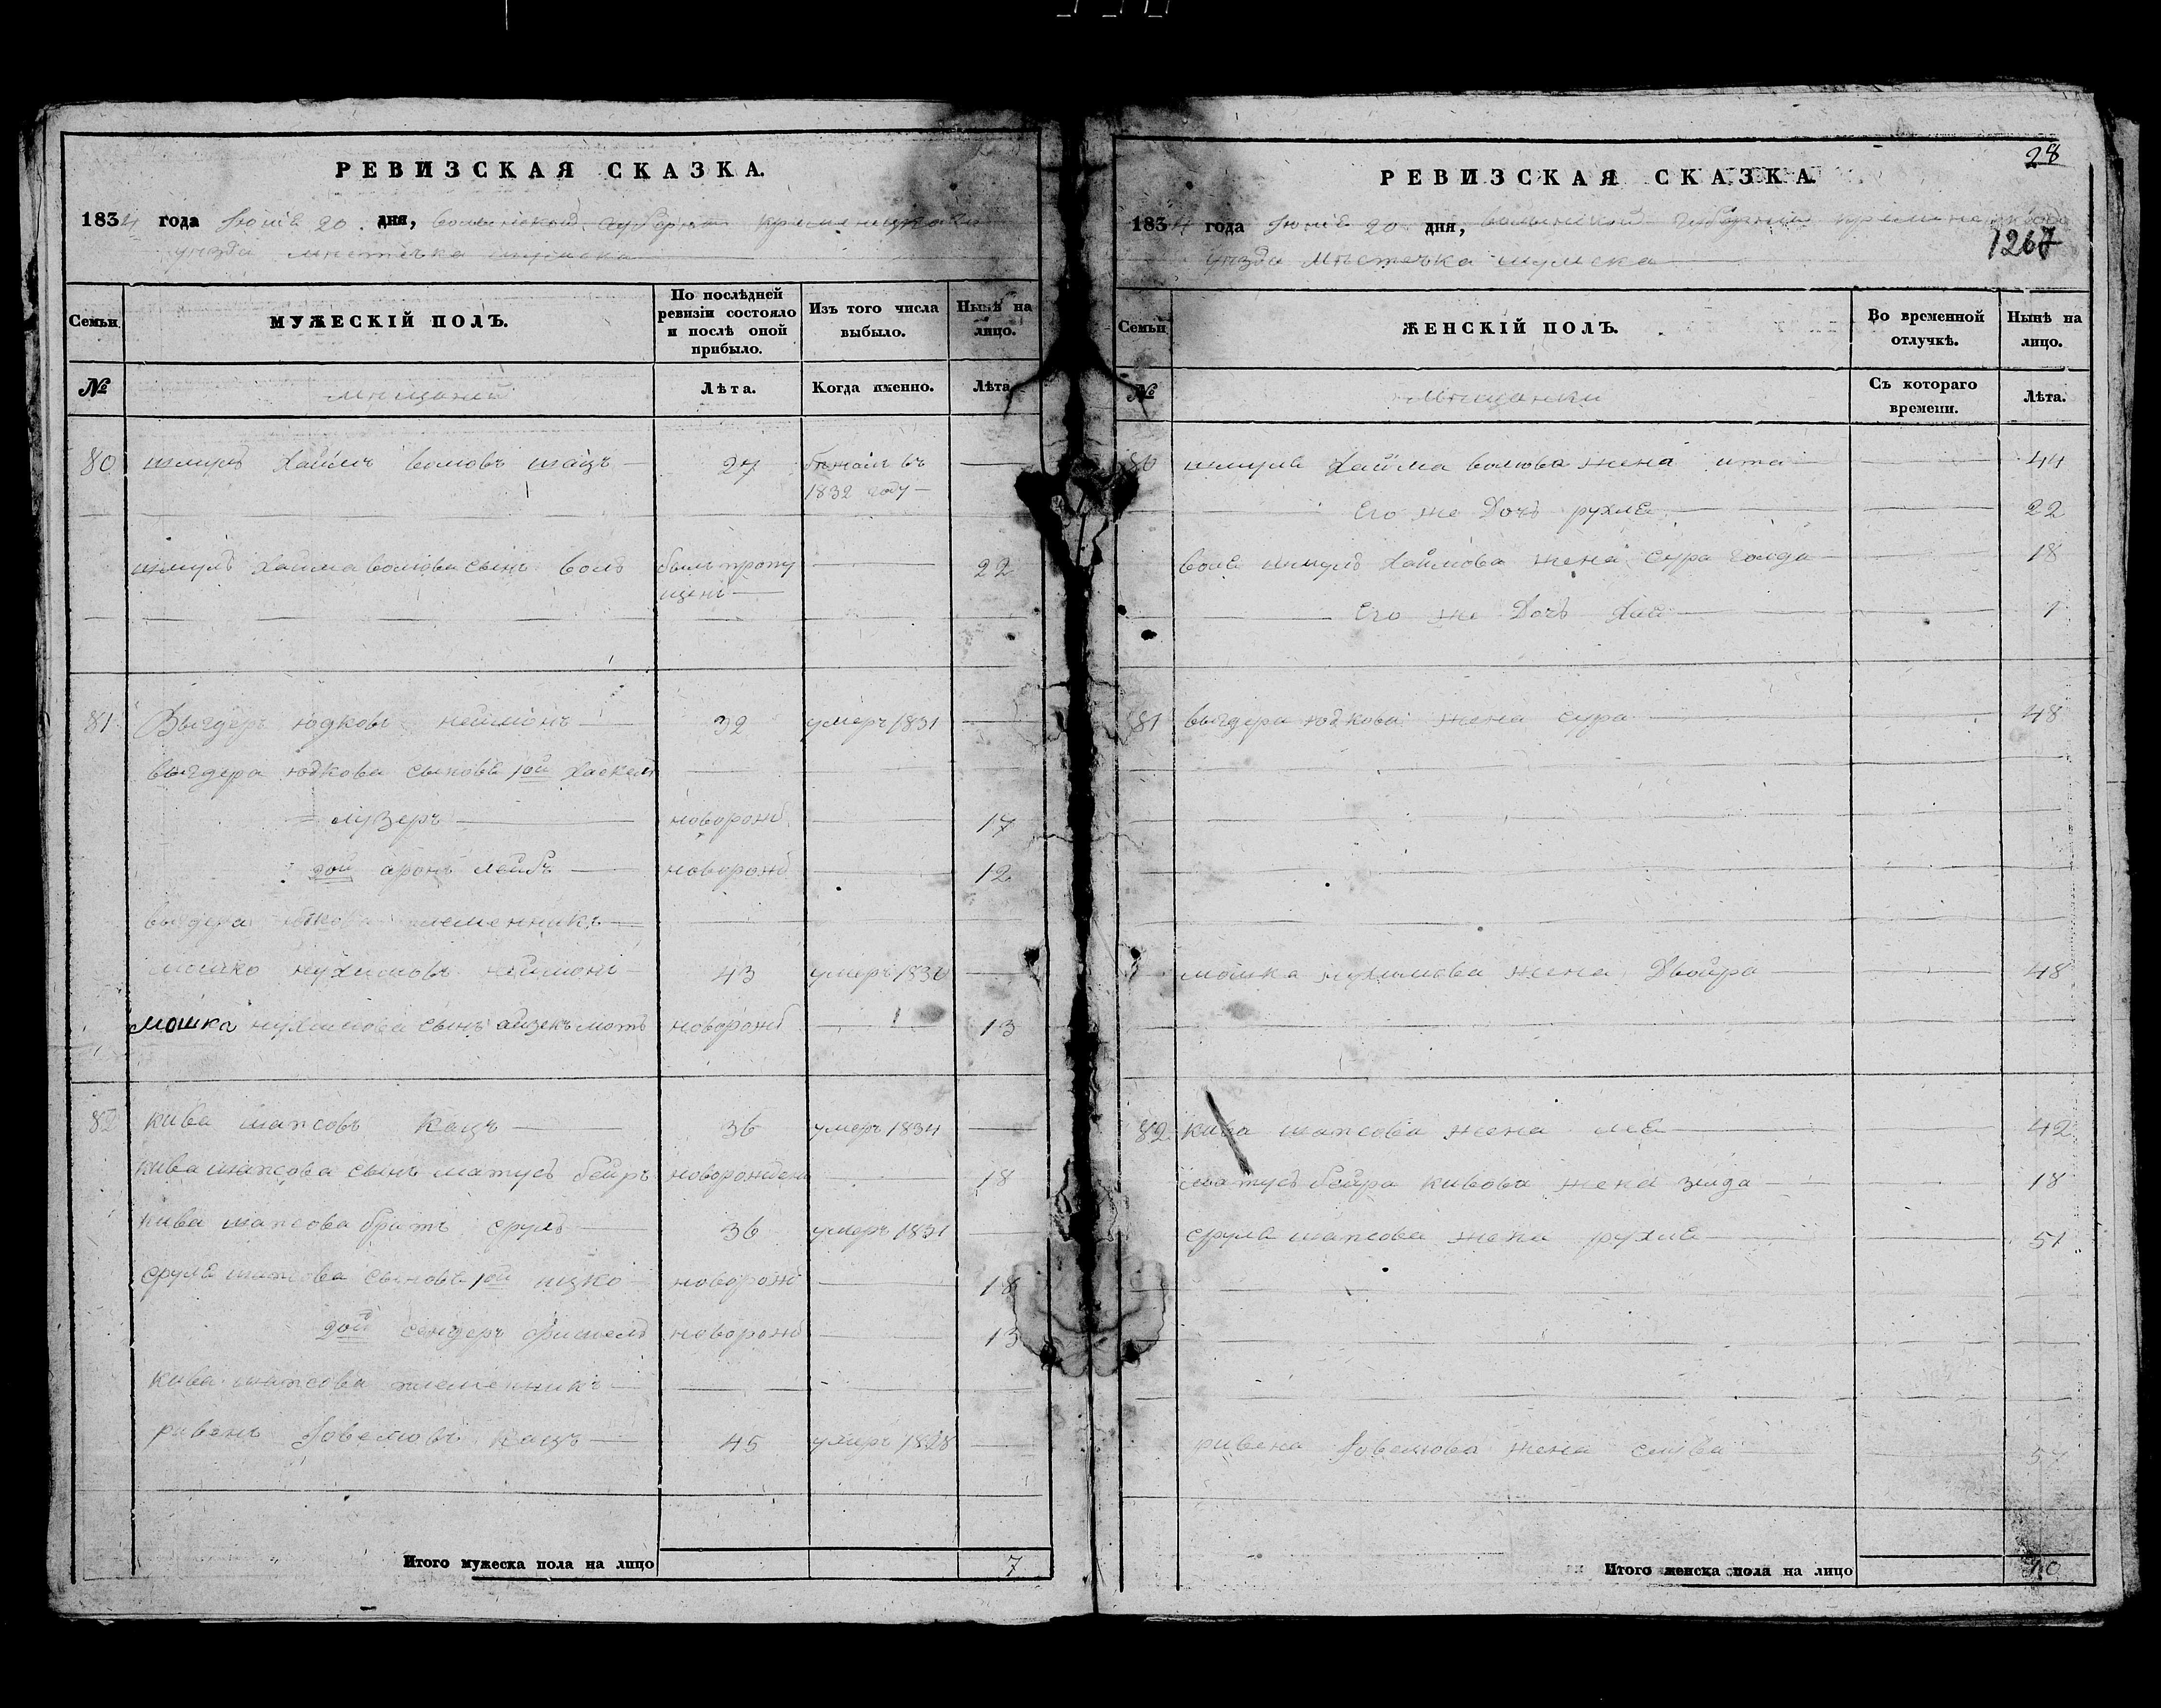 РЕВИЗСКАЯ СКАЗКА.
1834 года Июня 20 дня, волынской губернии кременецкого
уезда местечка шумска
Семьи
МУЖЕСКІЙ ПОЛЪ.
По послѣдней ревизіи состояло и послѣ оной прибыло.
Изъ того числа выбыло.
Нынѣ на лицо.
№
мещане
Лѣта.
Когда именно.
Лѣта
80 шмуль хаимъ волювъ 27 бежалъ въ
1832 году
шмуль хаима волюва сынъ воль былъ пропу 22
щенъ
81 Выгдеръ юдковъ неймонъ 32 умеръ 1831
выгдера юдкова сыновья 1ой хаскель
лузеръ новорожд 17
2ой аронъ лейбъ новорожд 12
выгдера юдкова племенникъ
мошко нухимовъ неймонъ 43 умеръ 1830
мошка нухимова сынъ айзекъ мотъ новорожд 13
82 кива шапсовъ кацъ 36 умеръ 1834
кива шапсова сынъ матусъ бейръ новорожден 18
кива шапсова братъ сруль 36 умеръ 1831
сруля шапсова сыновья 1ой ицко новорожд 18
2ой сендеръ фишель новорожд 13
кива шапсова племенникъ
ривенъ Iовелювъ кацъ 45 умеръ 1828
Итого мужеска пола на лицо 7
28
РЕВИЗСКАЯ СКАЗКА.
1834 года Июня 20 дня, волынской губернии кременецкого
1267
уезда местечка шумска
Семьи
ЖЕНСКІЙ ПОЛЪ.
Во временной отлучкѣ.
Нынѣ на лицо.
№
Мещанки
Съ котораго времени.
Лѣта.
80 шмуля хаима волюва жена ита 44
Его же Дочь рухля 22
воля шмуль хаимова жена сура голда 18
Его же Дочь хая 1
81 выгдера юдкова жена сура 48
мошка нухимова жена Двойра 48
82 кива шапсова жена лея 42
матусъ бейра кивова жена злада 18
сруля шапсова жена рухля 51
ривена Iовелюва жена слува 57
Итого женска пола на лицо 10